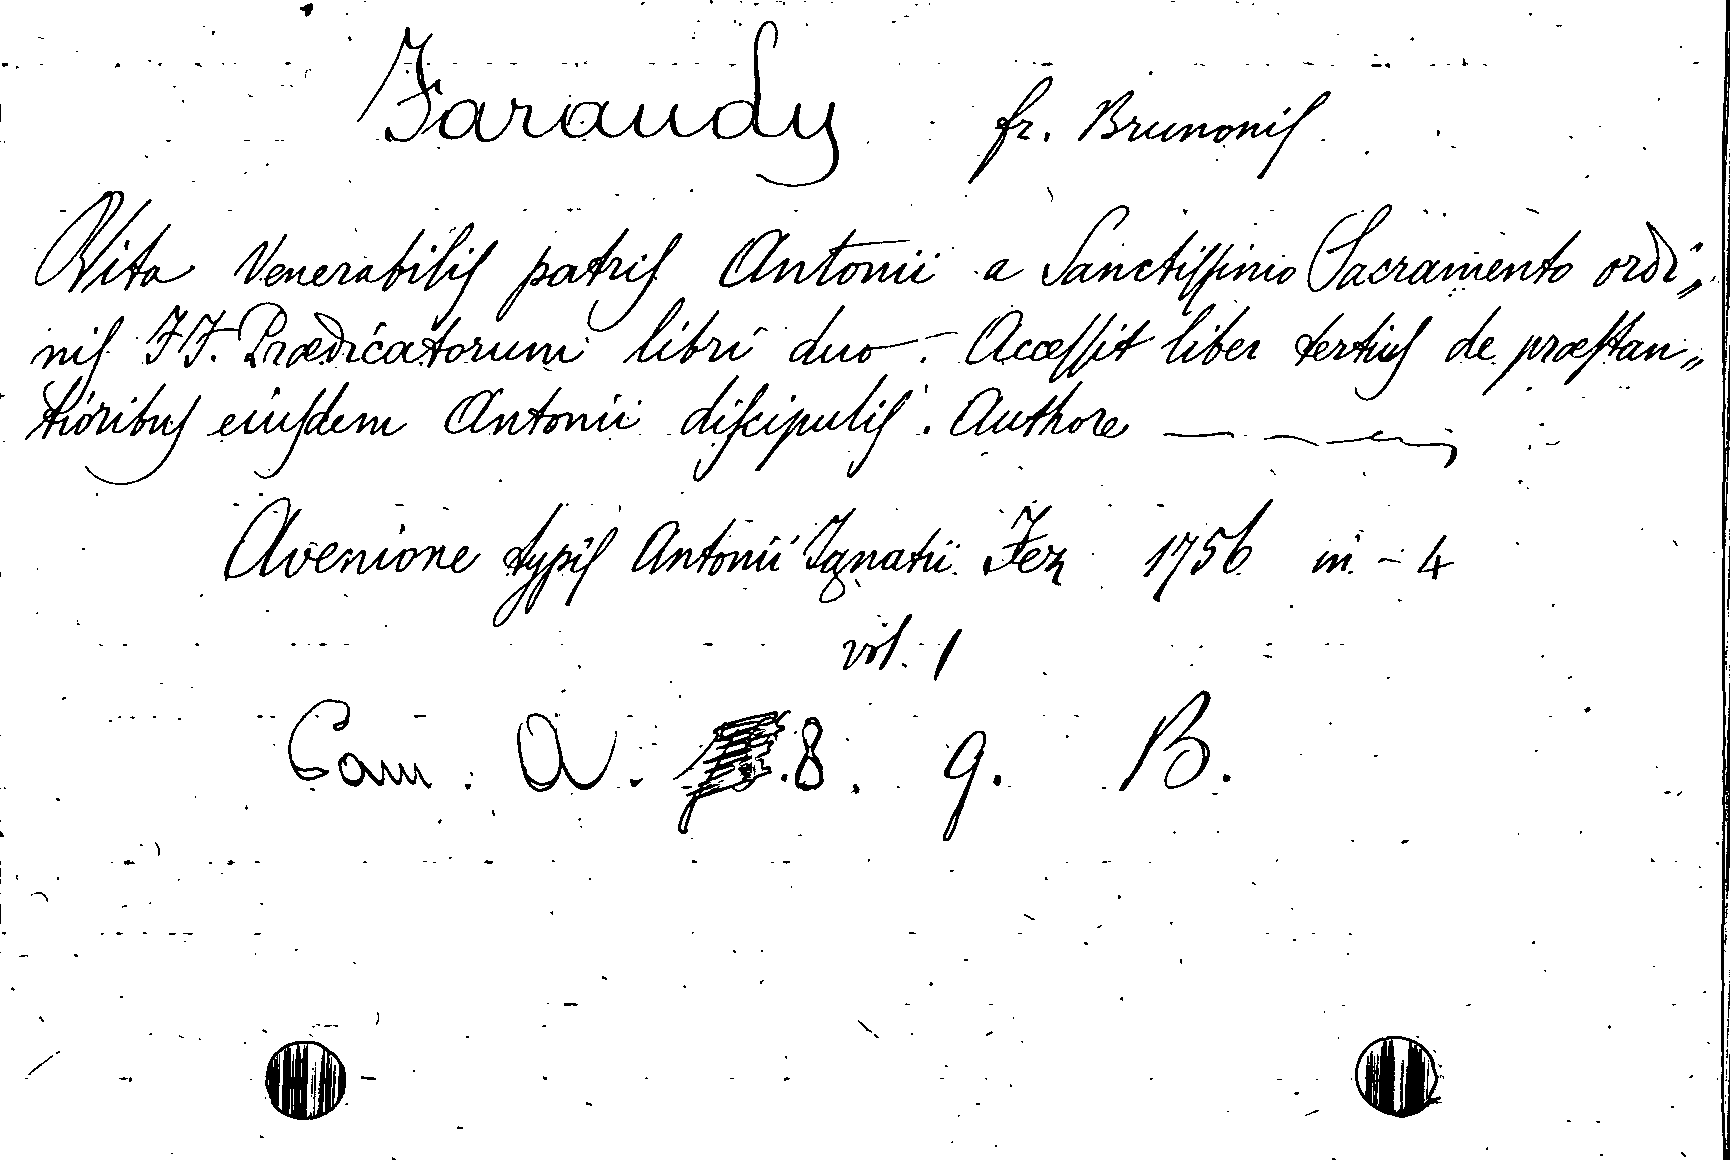 Faraudy fr. Brunonis
Vita Venerabilis patris Antonii a Sanctissimo Sacramento ordi„
nis FF. Prædicatorum libri duo. Accessit liber tertius de præstan„
tioribus eiusdem Antonii discipulis. Authore
Avenione typis Antonii Ignatii Fez 1756 in-4
vol. 1
Cam. A. 8. 9. B.